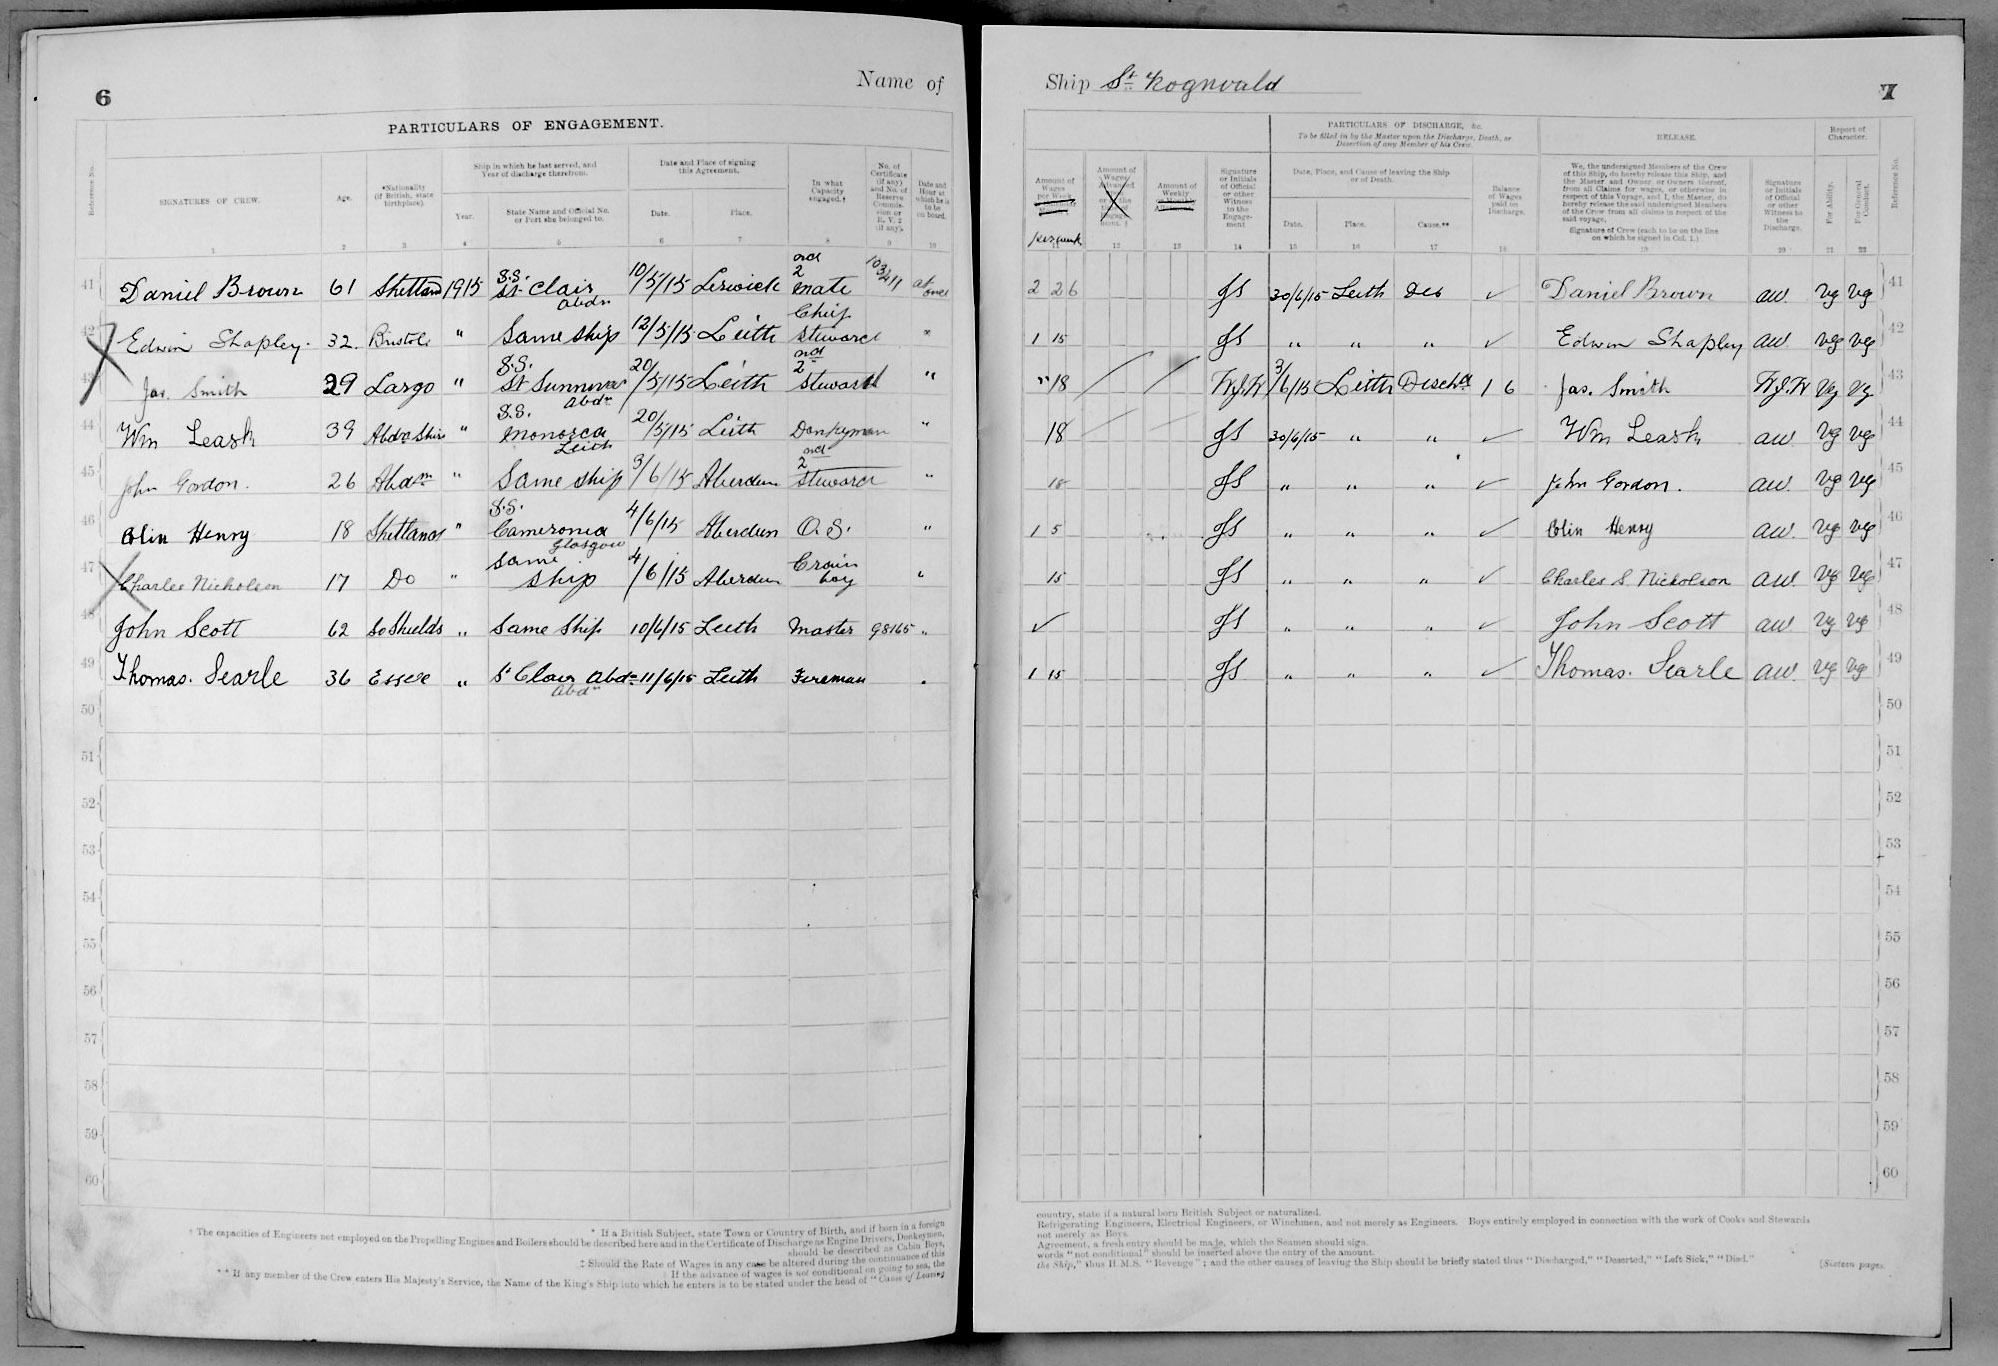 6
Name of
PARTICULARS OF ENGAGEMENT.
Reference No.
SIGNATURES OF CREW.
Age.
*Nationality (if British, state birthplace).
Ship in which he last served, and Year of discharge therefrom.
Year.
State Name and Official No. or Port she belonged to.
Date and Place of signing this Agreement.
Date.
Place.
In what Capacity engaged.†
No. of Certificate (if any) and No. of Reserve Commission or R. V. 2 (if any).
Date and Hour at which he is to be on board.
1 2 3 4 5 6 7 8 9 10
41 Daniel Brown 61 Shetland 1915 S.S. St. Clair Abdn 10/5/15 Lerwick 2nd Mate 103411 at once
42 Edwin Shapley. 32. Bristol " Same ship 12/5/15 Leith Chief Steward "
43 Jas. Smith 29 Largo " S.S. St Sunniva Abdn 20/5/15 Leith 2nd Steward "
44 Wm Leask 39 AbdnShire " S.S. Monorca Leith 20/5/15 Leith Donkeyman "
45 John Gordon. 26 Abdn " Same ship 3/6/15 Aberdeen 2nd Steward "
46 Olin Henry 18 Shetland " S.S. Cameronia Glasgow 4/6/15 Aberdeen O.S. "
47 Charles Nicholson 17 Do " Same ship 4/6/15 Aberdeen boy "
48 John Scott 62 So Shields " Same Ship 10/6/15 Leith Master 98165 "
49 Thomas. Searle 36 Essex " St Clair Abdn Abdn 11/6/15 Leith Fireman "
50
51
52
53
54
55
56
57
58
59
60
* If a British Subject, state Town or Country of Birth, and if born in a foreign
† The capacities of Engineers not employed on the Propelling Engines and Boilers should be described here and in the Certificate of Discharge as Engine Drivers, Donkeymen,
should be described as Cabin Boys,
‡ Should the Rate of Wages in any case be altered during the continuance of this
‖ If the advance of wages is not conditional on going to sea, the
** If any member of the Crew enters His Majesty's Service, the Name of the King's Ship into which he enters is to be stated under the head of "Cause of Leaving
Ship St. Rognvald
7
PARTICULARS OF DISCHARGE, &c.
To be filled in by the Master upon the Discharge, Death, or Desertion of any Member of his Crew.
RELEASE.
Report of Character.
Amount of Wages per Week
per week
Amount of Wages Advanced
Amount of Weekly
Signature or Initials of Official or other Witness to the Engagement
Date, Place, and Cause of leaving the Ship or of Death.
Date.
Place.
Cause.**
Balance of Wages paid on Discharge.
We, the undersigned Members of the Crew of this Ship, do hereby release this Ship, and the Master and Owner or Owners thereof, from all Claims for wages, or otherwise in respect of this Voyage, and I, the Master, do hereby release the said undersigned Members of the Crew from all claims in respect of the said voyage.
Signature of Crew (each to be on the line on which he signed in Col. 1.)
Signature or Initials of Official or other Witness to the Discharge.
For Ability.
For General Conduct.
Reference No.
11 12 13 14 15 16 17 18 19 20 21 22
2 2 6 JS 30/6/15 Leith Des ✓ Daniel Brown AW. Vg Vg 41
1 15 JS " " " ✓ Edwin Shapley AW Vg Vg 42
" 18 W.J.W 3/6/15 Leith Dischd 1 6 Jas. Smith W.J.W Vg Vg 43
18 JS 30/6/15 " " ✓ Wm Leask AW. Vg Vg 44
18 JS " " " ✓ John Gordon. AW. Vg Vg 45
1 5 JS " " " ✓ Olin Henry AW. Vg Vg 46
15 JS " " " ✓ Charles S Nicholson AW. Vg Vg 47
✓ JS " " " ✓ John Scott AW Vg Vg 48
1 15 JS " " " ✓ Thomas. Searle AW. Vg Vg 49
50
51
52
53
54
55
56
57
58
59
60
country, state if a natural born British Subject or naturalized.
Refrigerating Engineers, Electrical Engineers, or Winchmen, and not merely as Engineers. Boys entirely employed in connection with the work of Cooks and Stewards
not merely as Boys.
Agreement, a fresh entry should be made, which the Seamen should sign.
words "not conditional" should be inserted above the entry of the amount.
the Ship," thus H.M.S. "Revenge"; and the other causes of leaving the Ship should be briefly stated thus "Discharged," "Deserted," "Left Sick," "Died."
(Sixteen pages.